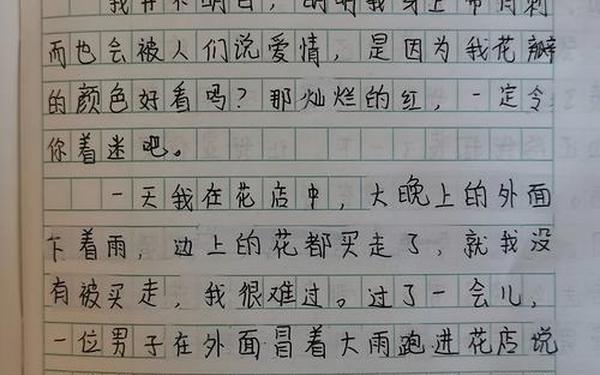 我并不明白，明明我身上带有刺
而也会被人们说爱情，是因为我花瓣
的颜色好看吗？那灿烂的红，一定令
你着迷吧。
一天我在花店中，大晚上的外面
下着雨，边上的花都买走了，就我没
有被买走，我很难过。过了一会儿，
一位男子在外面冒着大雨跑进花店说